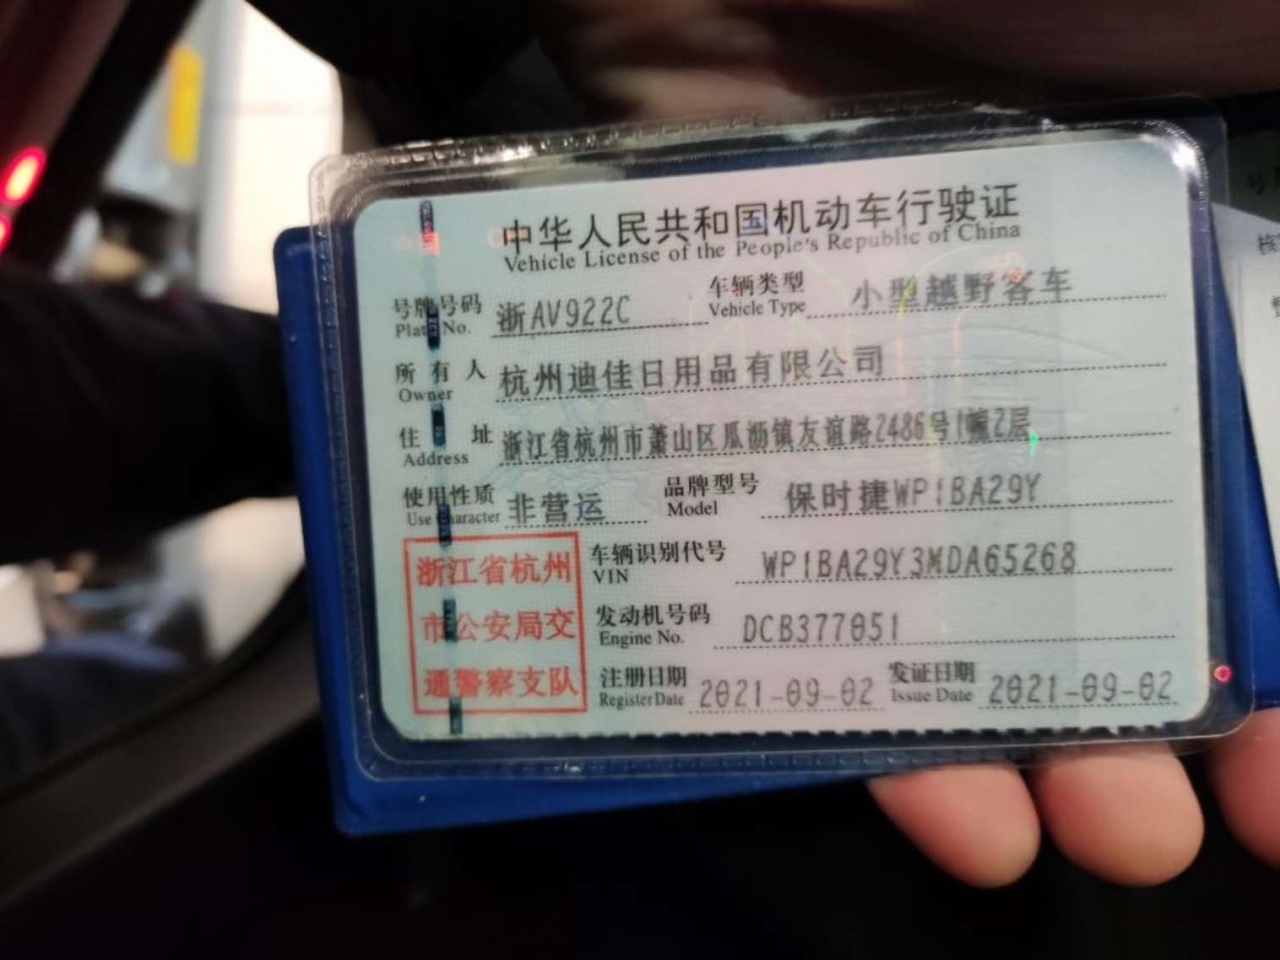 中华人民共和国机动车行驶证
Vehicle License of the People's Republic of China
号牌号码 浙AV922C 车辆类型 小型越野客车
Plate No. Vehicle Type
所有人 杭州迪佳日用品有限公司
Owner
住址 浙江省杭州市萧山区瓜沥镇友谊路2486号1幢2层
Address
使用性质 非营运 品牌型号 保时捷WP1BA29Y
Use Character Model
浙江省杭州
市公安局交
通警察支队
车辆识别代号 WP1BA29Y3MDA65268
VIN
发动机号码 DCB377051
Engine No.
注册日期 2021-09-02 发证日期 2021-09-02
Register Date Issue Date